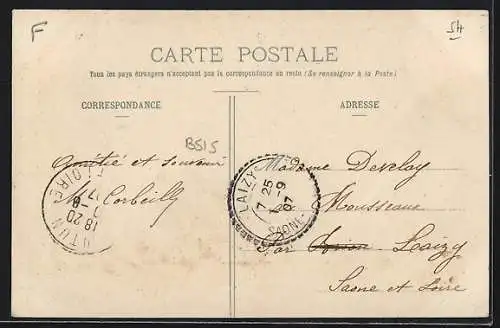 F
SH
CARTE POSTALE
Tous les pays étrangers n'acceptent pas la correspondance au recto (Se renseigner à la Poste)
CORRESPONDANCE
ADRESSE
B515
Amitié et souvenir
M. Corbeilly
Madame Develay
Mousseaux
par Laizy
Saone et Loire
LAIZY
7 25
-9
07
SAONE-
AUTUN
18 20
-9
LOIRE